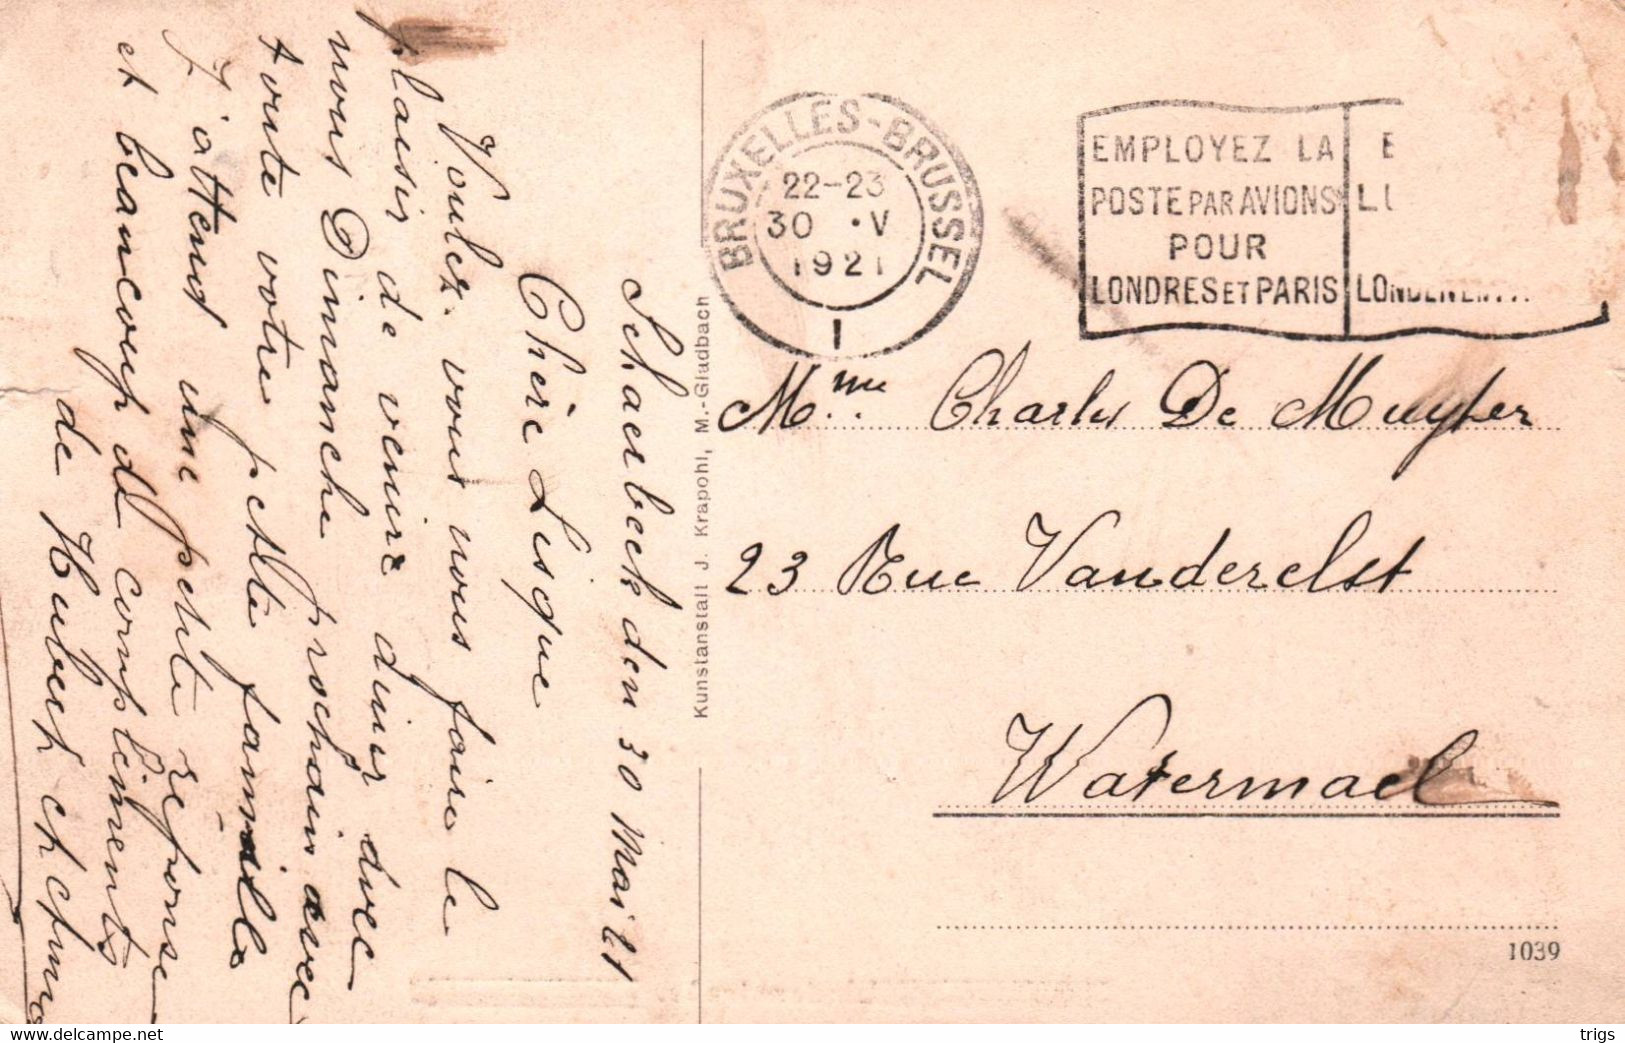 Schaerbeek den 30 Mai 21
Chère Lisque
Voulez vous nous faire le
plaisir de venir diner avec
nous Dimanche prochain avec
toute votre petite famille
J'attend une petite réponse
et beaucoup de compliments
de Hubert et et
Kunstanstalt J. Krapohl, M.-Gladbach
BRUXELLES-BRUSSEL
22-23
30 ·V
1921
1
EMPLOYEZ LA
POSTE PAR AVIONS
POUR
LONDRES ET PARIS
E
LU
LONDEN EN
Mme Charles De Muyter
23 Rue Vanderelst
Watermael
1039
trigs
delcampe.net